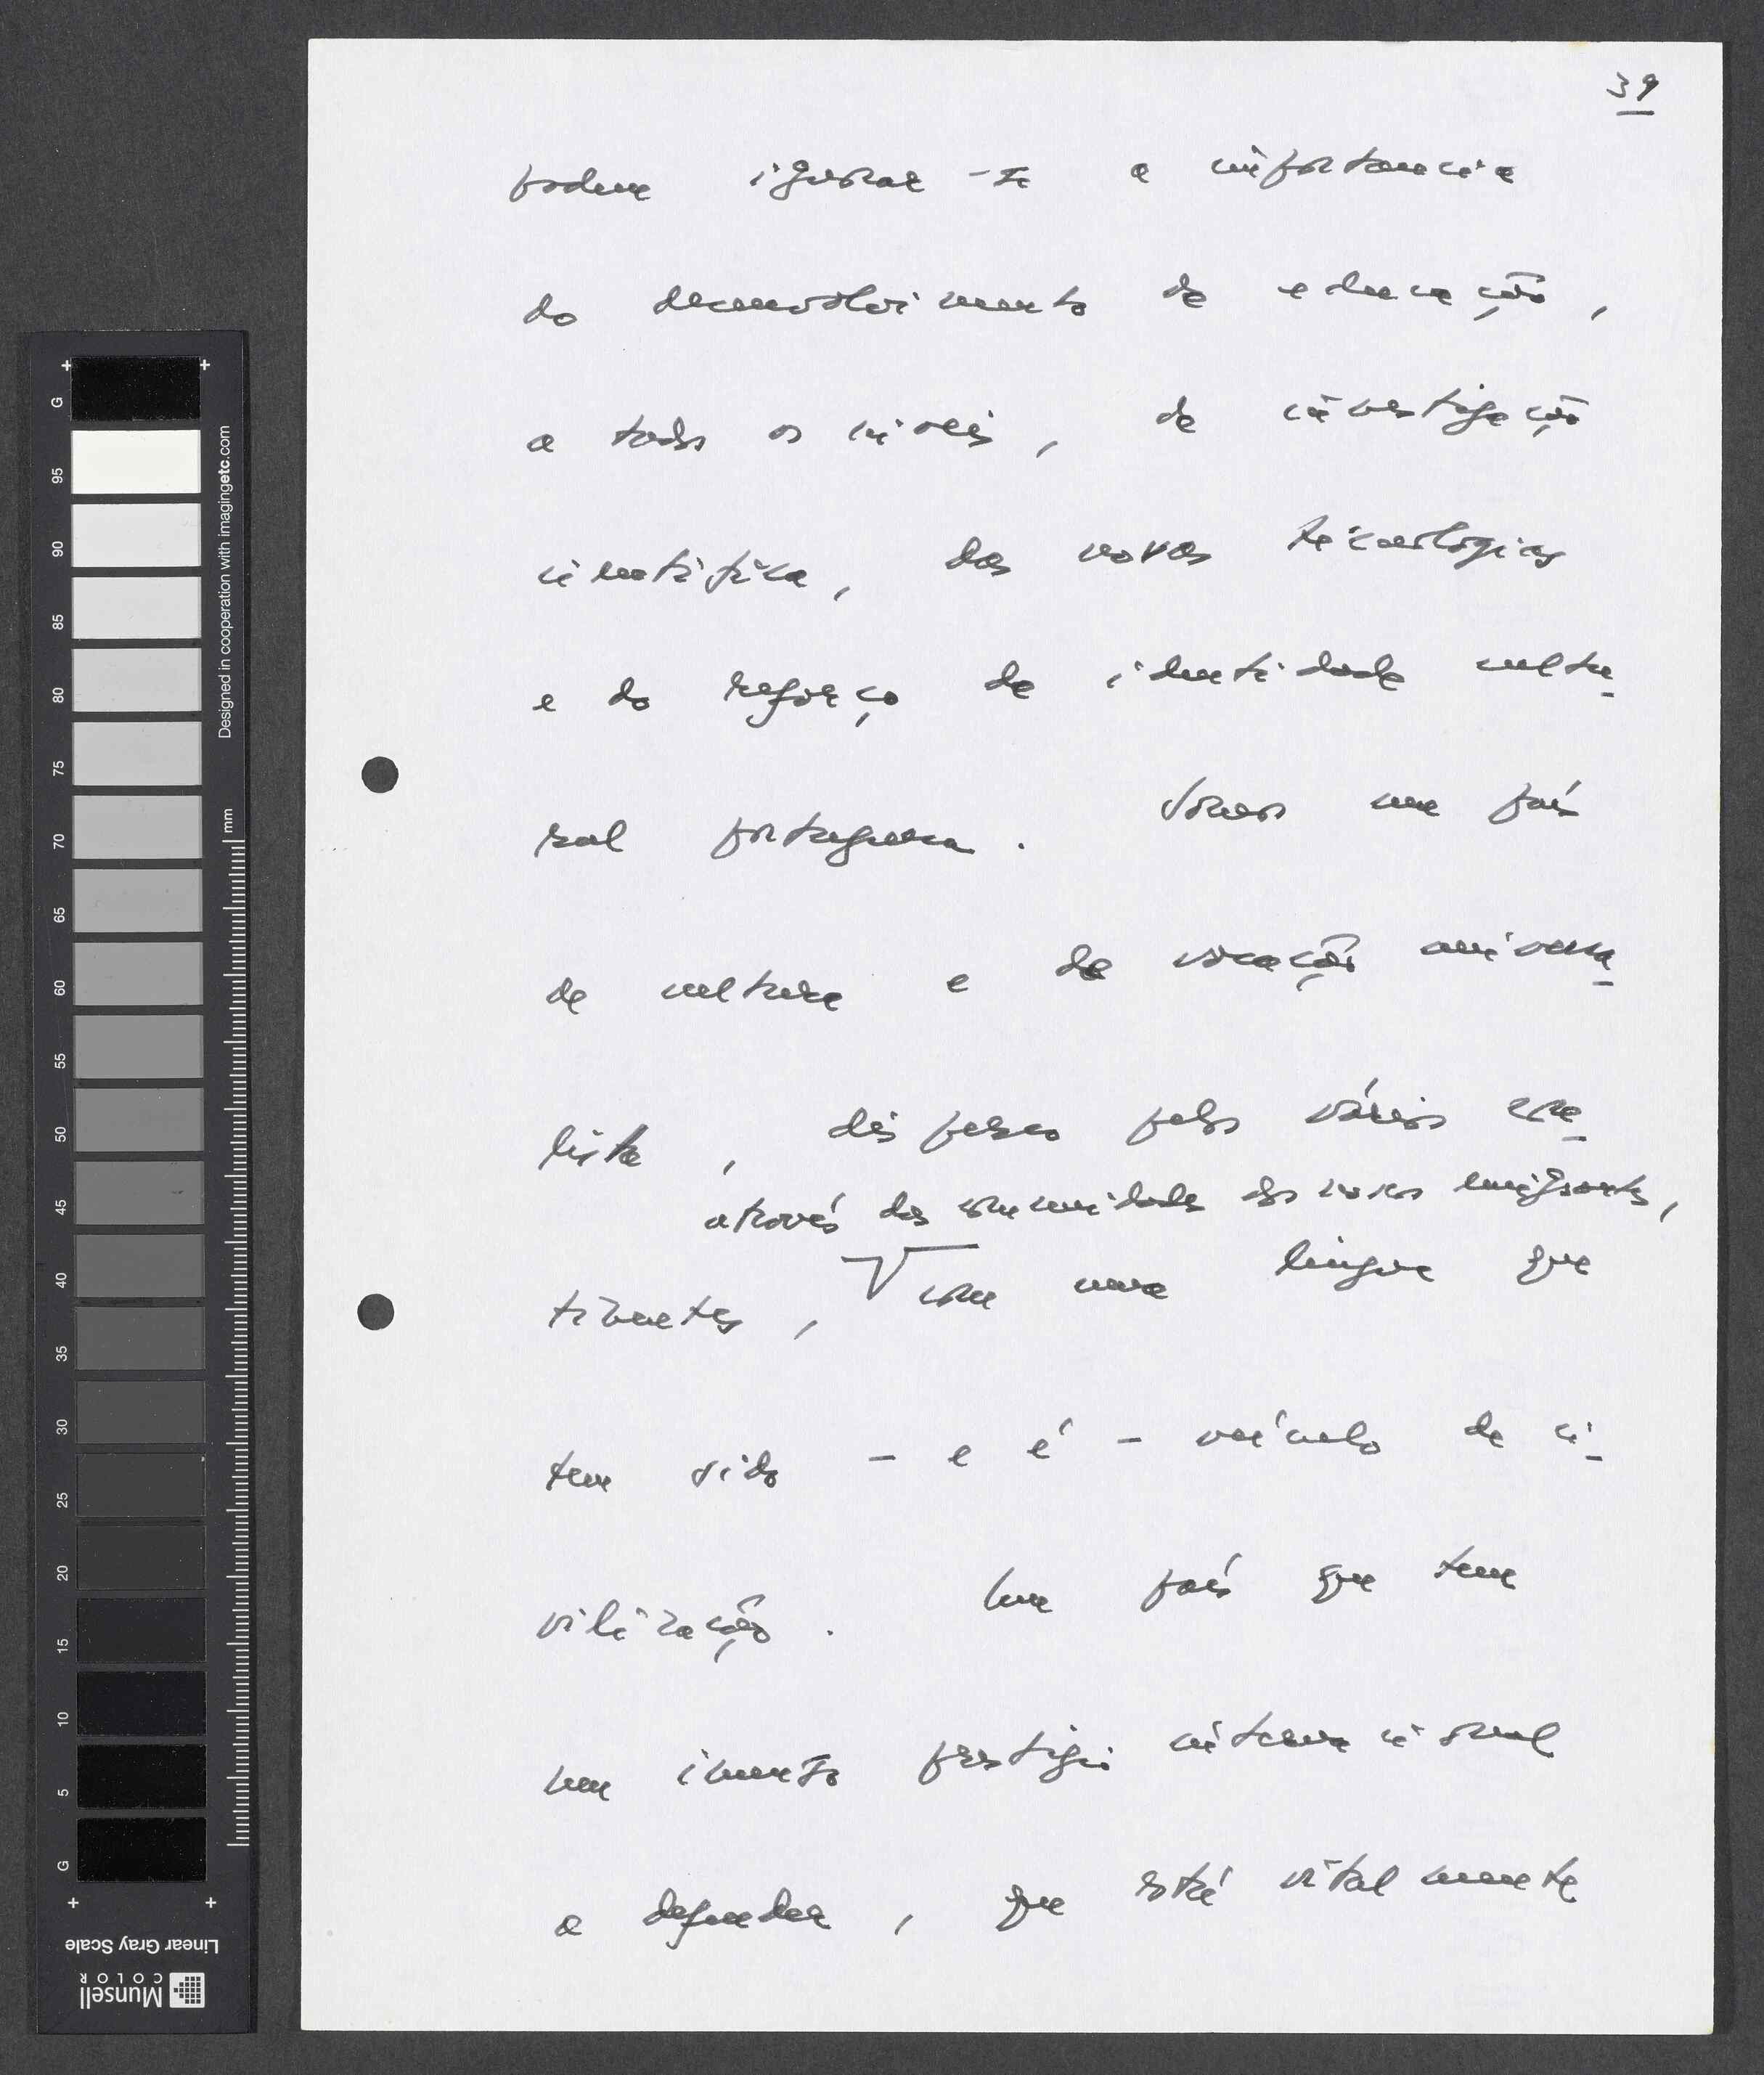 39
podem ignorar-se a importancia
do desenvolvimento da educação,
a todos os níveis, da investigação
científica, das novas técnologias
e do reforço da identidade cultu-
ral portuguesa. Somos um país
de cultura e de vocação universa-
lista, disperso pelos vários con-
através das comunidades dos nossos emigrantes,
tinentes, com uma língua que
tem sido - e é - veículo de ci-
vilização. Um país que tem
um imenso prestígio internacional
a defender, que está vitalmente
G
95
90
85
80
75
70
65
60
55
50
45
40
35
30
25
20
15
10
5
G
Designed in cooperation with imagingetc.com
mm
Linear Gray Scale
Munsell
COLOR